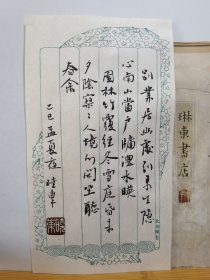 別業居幽處到來生隱
心南山當戶牖澧水映
園林竹覆經冬雪庭昏未
夕陰寥寥人境外閒坐聽
春禽
乙巳孟夏夜
琳東書店